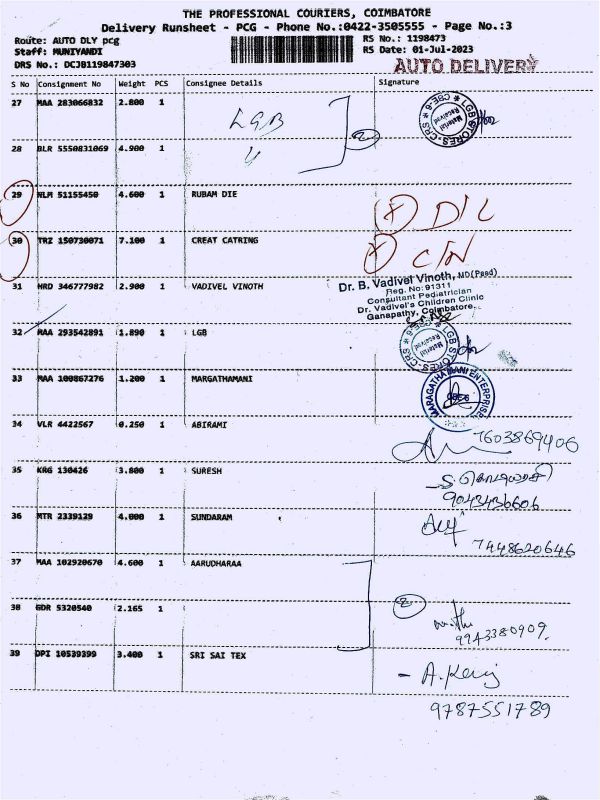 THE PROFESSIONAL COURIERS, COIMBATORE
Delivery Runsheet - PCG - Phone No.:0422-3505555 - Page No.:3
Route: AUTO DLY pcg
RS No.: 1198473
Staff: MUNIYANDI
RS Date: 01-Jul-2023
DRS No.: DCJB119847303
AUTO DELIVERY
S No Consignment No Weight PCS Consignee Details Signature
27 MAA 283066832 2.800 1 LGB
LGB STORES-CRS ★ CBE-6 ★
Material Received
2
28 BLR 5550831069 4.900 1 "
29 NLM 51155450 4.600 1 RUBAM DIE
D/L
30 TRZ 150730071 7.100 1 CREAT CATRING
31 HRD 346777982 2.900 1 VADIVEL VINOTH
Dr. B. Vadivel Vinoth, MD(Paed)
Reg. No: 91311
Consultant Pediatrician
Dr. Vadivel's Children Clinic
Ganapathy, Coimbatore.
32 MAA 293542891 1.890 1 LGB
LGB STORES-CRS ★ CBE-6 ★
Material Received
33 MAA 100867276 1.200 1 MARGATHAMANI
MARAGATHAMANI ENTERPRISES
34 VLR 4422567 0.250 1 ABIRAMI
7603869406
35 KRG 130426 3.800 1 SURESH
9043436606
36 MTR 2339129 4.000 1 SUNDARAM
7448620646
37 MAA 102920670 4.600 1 AARUDHARAA
38 GDR 5320540 2.165 1
2
9943380909.
39 DPI 10539399 3.400 1 SRI SAI TEX
9787551789